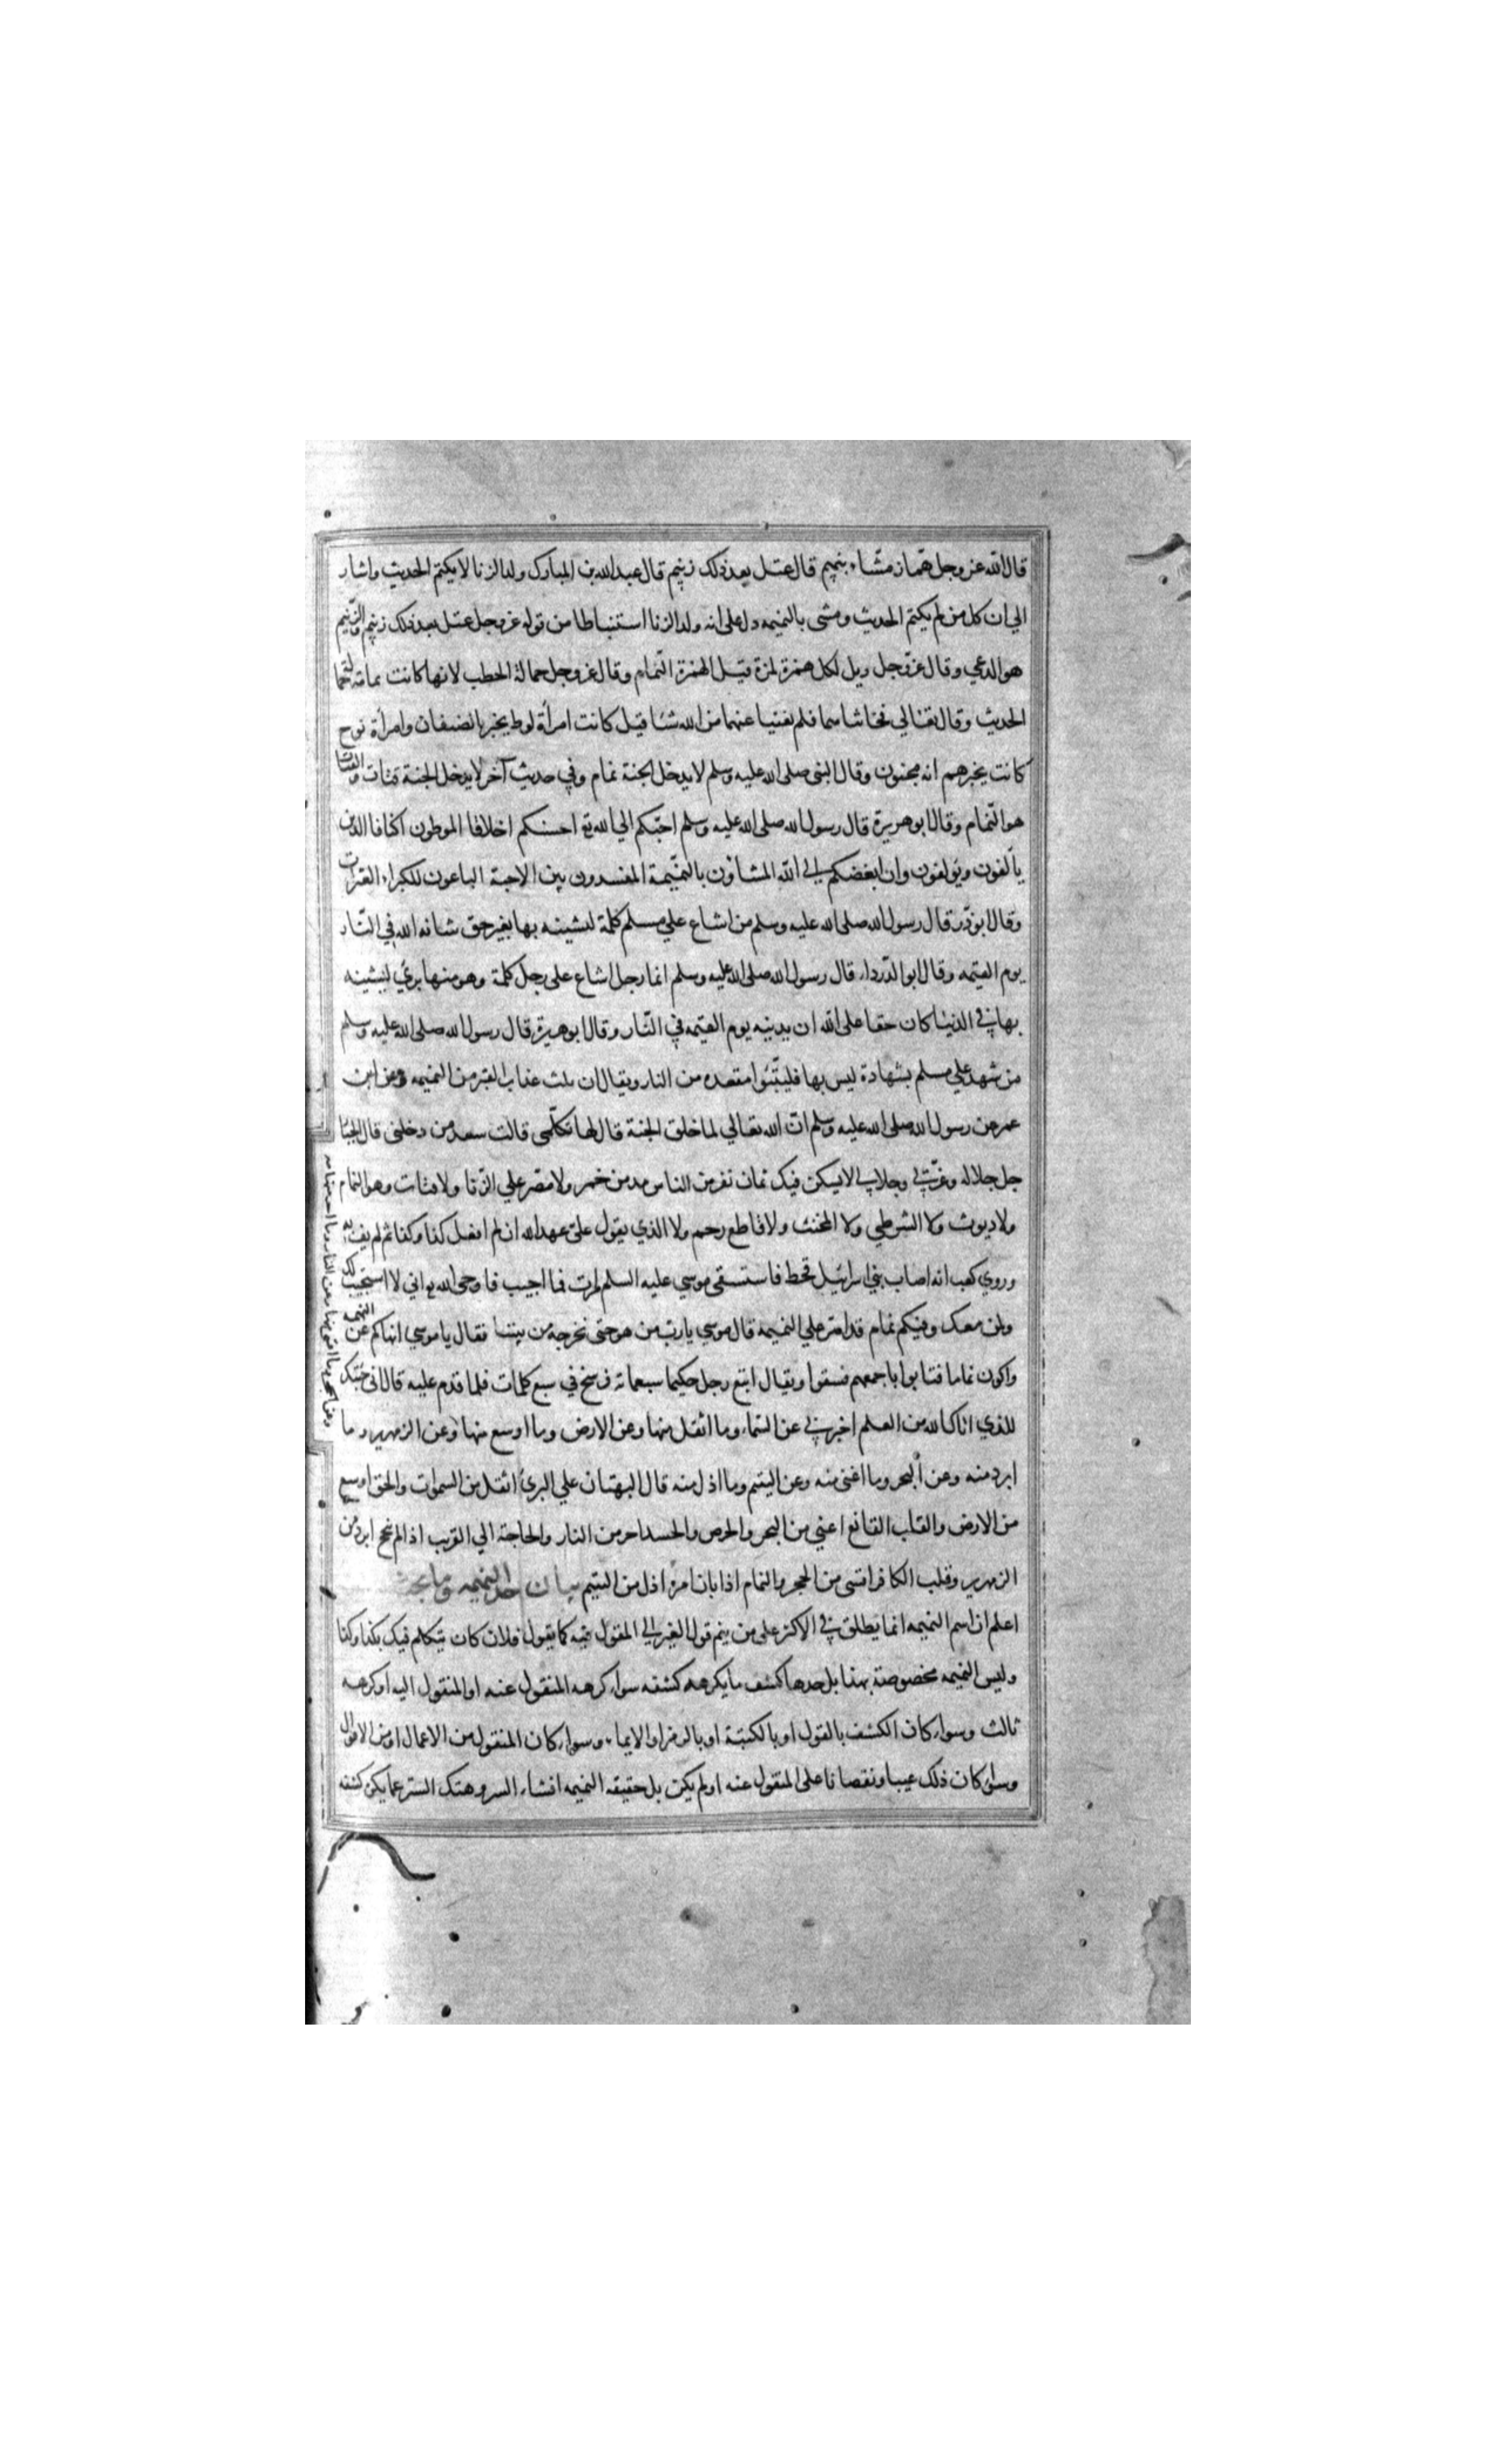 قال الله عز وجل همّاز مشّاء بنميم قال عتل بعد ذلك زنيم قال عبد الله بن المبارك ولد الزنا لا يكتم الحديث واشار
الي ان كل من لم يكتم الحديث ومشى بالنميمه دل على انه ولد الزنا استنباطا من قوله عز وجل عتل بعد ذلك زنيم والزنيم
هو الدعي وقال عز وجل ويل لكل همزة لمزة قيل الهمزة النمام وقال عز وجل حمالة الحطب لانها كانت نمامة حمالة
الحديث وقال تعالي فخانتاهما فلم يغنيا عنهما من الله شئا قيل كانت امرأة لوط يخبر بالضيفان وامرأة نوح
كانت يخبرهم انه مجنون وقال النبي صلى الله عليه وسلم لا يدخل الجنة نمام وفي حديث آخر لا يدخل الجنة قتات والقتات
هو النمام وقال ابو هريرة قال رسول الله صلى الله عليه وسلم احبّكم الي الله تع احسنكم اخلاقا الموطون اكنافا الذين
يألفون ويؤلفون وان ابغضكم الي الله المشاؤن بالنميمة المفسدون بين الاحبة الباعون للكبراء العثرات
وقال ابو ذر قال رسول الله صلى الله عليه وسلم من اشاع علي مسلم كلمة ليشينه بها بغير حق شانه الله في النّار
يوم القيمه وقال ابو الدرداء قال رسول الله صلى الله عليه وسلم انما رجل اشاع على رجل كلمة وهو منها بري ليشينه
بها في الدنيا كان حقا على الله ان يدينه يوم القيمه في النّار وقال ابو هريرة قال رسول الله صلى الله عليه وسلم
من شهد علي مسلم بشهادة ليس بها فليتبّئوا مقعده من النار ويقال ان ثلث عذاب القبر من النميمه وعن ابن
عمر عن رسول الله صلى الله عليه وسلم انّ الله تعالي لما خلق الجنة قال لها تكلّمى قالت سعد من دخلني قال الجبار
جل جلاله وعزّتي وجلالي لا يسكن فيك ثمان نفر من الناس مدمن خمر ولا مصر علي الزنا ولا قتات وهو النمام
ولا ديوث ولا الشرطي ولا المخنث ولا قاطع رحم ولا الذي يقول علىّ عهد الله ان لم افعل كذا وكذا ثم لم يف به
وروي كعب انه اصاب بني اسرائيل قحط فاستسقى موسي عليه السلم مرات فما اجيب فاوحى الله تع اني لا استجيب لك
ولمن معك وفيكم نمام قد اصر علي النميمه قال موسي يا رب من هو حتى نخرجه من بيننا فقال يا موسي انهاكم عن النميمه
واكون نماما فتابوا باجمعهم فسقوا ويقال اتبع رجل حكيما سبعماة فرسخ في سبع كلمات فلما قدم عليه قال اني جئتك
للذي اتاك الله من العلم اخبرني عن السّماء وما اثقل منها وعن الارض وما اوسع منها وعن الزمهرير وما
ابرد منه وعن البحر وما اغنى منه وعن اليتيم وما اذل منه قال البهتان علي البريّ اثقل من السموات والحق اوسع
من الارض والقلب القانع اغني من البحر والحرص والحسد احر من النار والحاجة الي القريب اذا لم تنجح ابرد من
الزمهرير وقلب الكافر اقسى من الحجر والنمام اذا بان امره اذل من اليتيم بيان حد النميمه وما يجب
اعلم ان اسم النميمه انما يطلق في الاكثر على من ينم قول الغير الي المقول فيه كما يقول فلان كان يتكلم فيك بكذا وكذا
وليس النميمه مخصوصة بهذا بل حدها كشف ما يكره كشفه سواء كرهه المنقول عنه او المنقول اليه او كرهه
ثالث وسواء كان الكشف بالقول او بالكتبة او بالرمز او الايماء وسواء كان المنقول من الاعمال او من الاقوال
وسواء كان ذلك عيبا ونقصانا على المنقول عنه او لم يكن بل حقيقه النميمه افشاء السر وهتك الستر عما يكره كشفه
وعن الحجر وما اقسى منها وعن النار وما احر منها